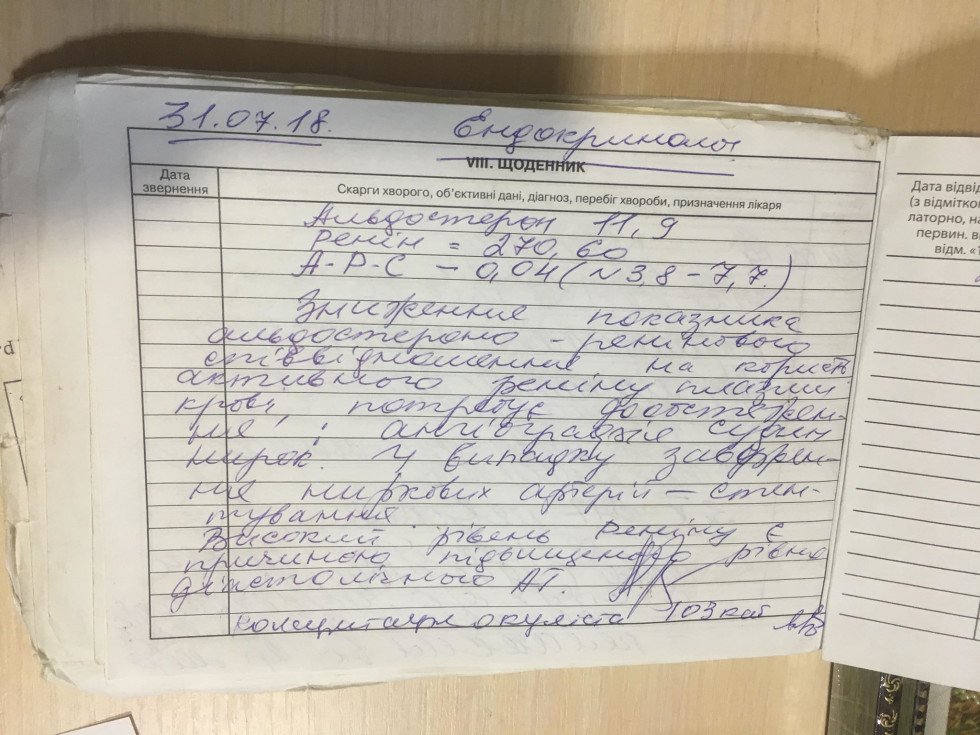 31.07.18. Ендокринолог
VIII. ЩОДЕННИК
Дата звернення
Скарги хворого, об'єктивні дані, діагноз, перебіг хвороби, призначення лікаря
Альдостерон 11,9
Ренін = 270,60
А-Р-С – 0,04 (N 3,8 – 7,7)
Зниження показника
альдостероно - ренінового
співвідношення на користь
активного реніну плазми
крові, потребує дообстежен-
ня : ангіографія судин
нирок. У випадку
ня ниркових артерій – стен-
тування.
Високий рівень Реніну є
причиною підвищеного рівня
діастолічного АТ.
Консультация окуліста 103 каб
Дата відвід
(з відмітко
латорно, на
первин. ви
відм. «